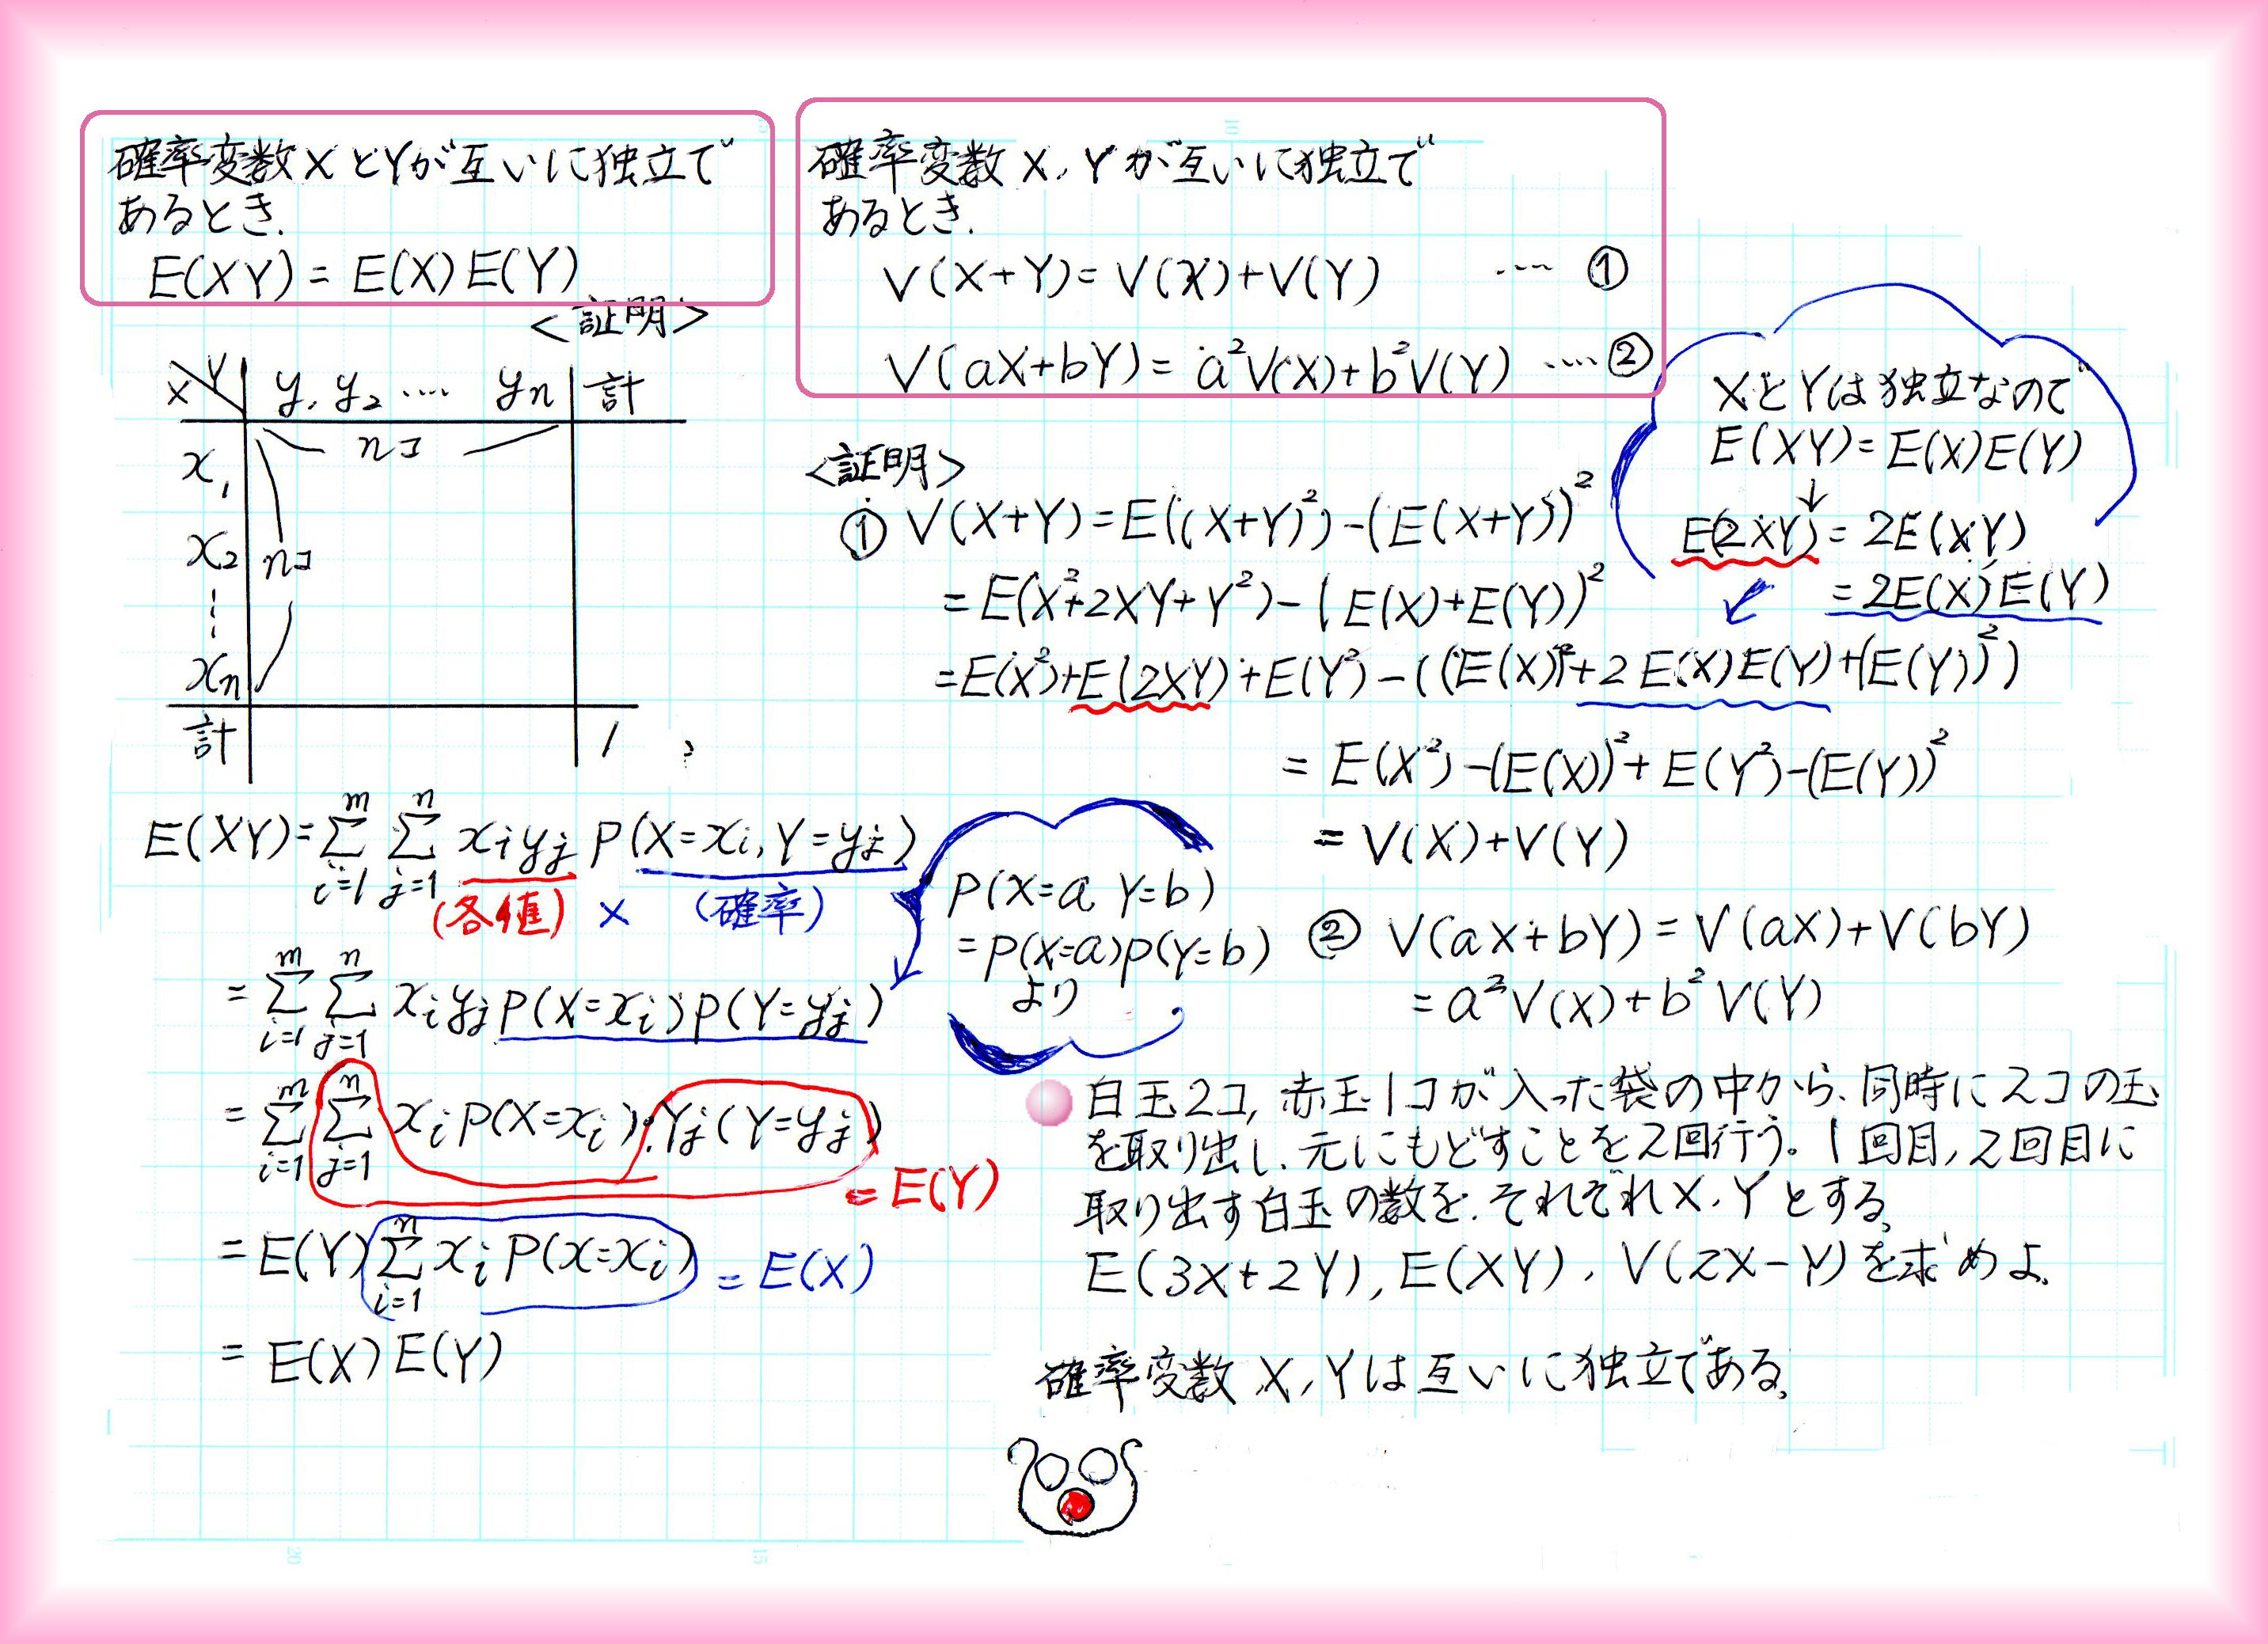 確率変数XとYが互いに独立で
あるとき.
E(XY) = E(X)E(Y)
<証明>
X Y y₁ y₂ ‥‥ yn 計
x₁ nコ
x₂ nコ
⋮
xn
計 1
E(XY)=∑_{i=1}^{m} ∑_{j=1}^{n} xiyj P(X=xi, Y=yj)
(各値) × (確率)
P(X=a Y=b)
=P(X=a)P(Y=b)
より
=∑_{i=1}^{m} ∑_{j=1}^{n} xiyj P(X=xi)P(Y=yj)
=∑_{i=1}^{m} ∑_{j=1}^{n} xi P(X=xi)・Yj(Y=yj)
=E(Y)
=E(Y) ∑_{i=1}^{n} xi P(x=xi) =E(X)
= E(X)E(Y)
確率変数X, Yが互いに独立で
あるとき.
V(X+Y)=V(X)+V(Y) ‥‥ ①
V(aX+bY)= a²V(X)+b²V(Y) ‥‥②
XとYは独立なので
E(XY)=E(X)E(Y)
↓
E(2XY)=2E(XY)
=2E(X)E(Y)
<証明>
① V(X+Y)=E((X+Y)²)-(E(X+Y))²
=E(X²+2XY+Y²)-(E(X)+E(Y))²
=E(X²)+E(2XY)+E(Y²)-((E(X))²+2E(X)E(Y)+(E(Y))²)
=E(X²)-(E(X))²+E(Y²)-(E(Y))²
=V(X)+V(Y)
② V(aX+bY)=V(aX)+V(bY)
=a²V(X)+b²V(Y)
白玉2コ, 赤玉1コが入った袋の中から、同時に2コの玉
を取り出し、元にもどすことを2回行う。1回目, 2回目に
取り出す白玉の数を、それぞれX, Yとする。
E(3X+2Y), E(XY), V(2X-Y)を求めよ。
確率変数X, Yは互いに独立である。
20
15
15
10